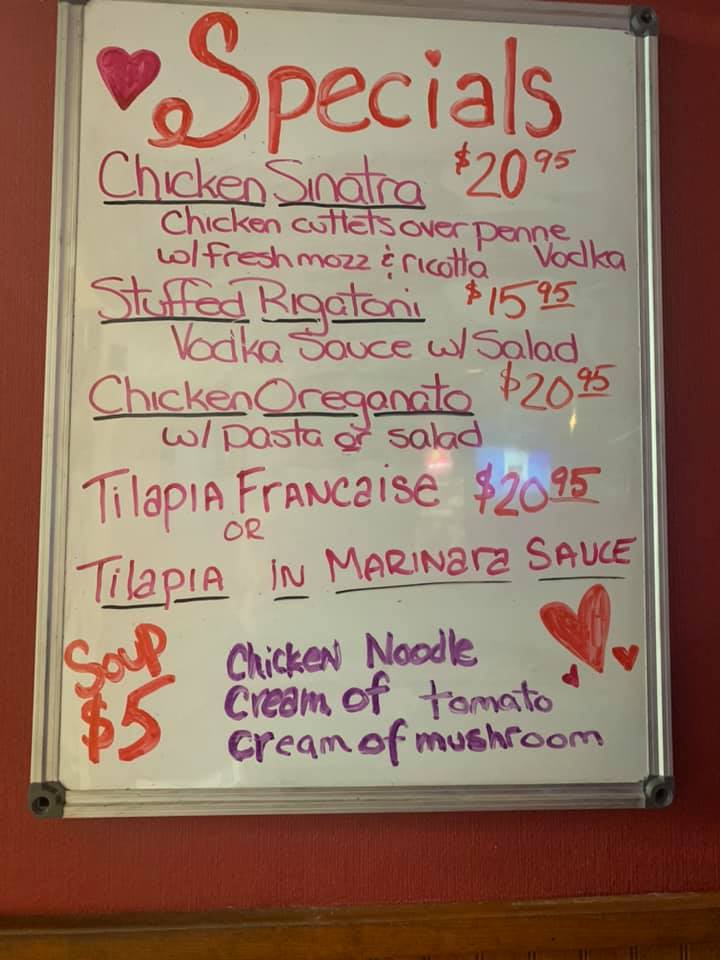 Specials
Chicken Sinatra $20.95
Chicken cutlets over penne
w/ fresh mozz & ricotta Vodka
Stuffed Rigatoni $15.95
Vodka Sauce w/ Salad
Chicken Oreganato $20.95
w/ pasta or salad
Tilapia Francaise $20.95
OR
Tilapia in Marinara Sauce
Soup
$5
Chicken Noodle
Cream of tomato
Cream of mushroom